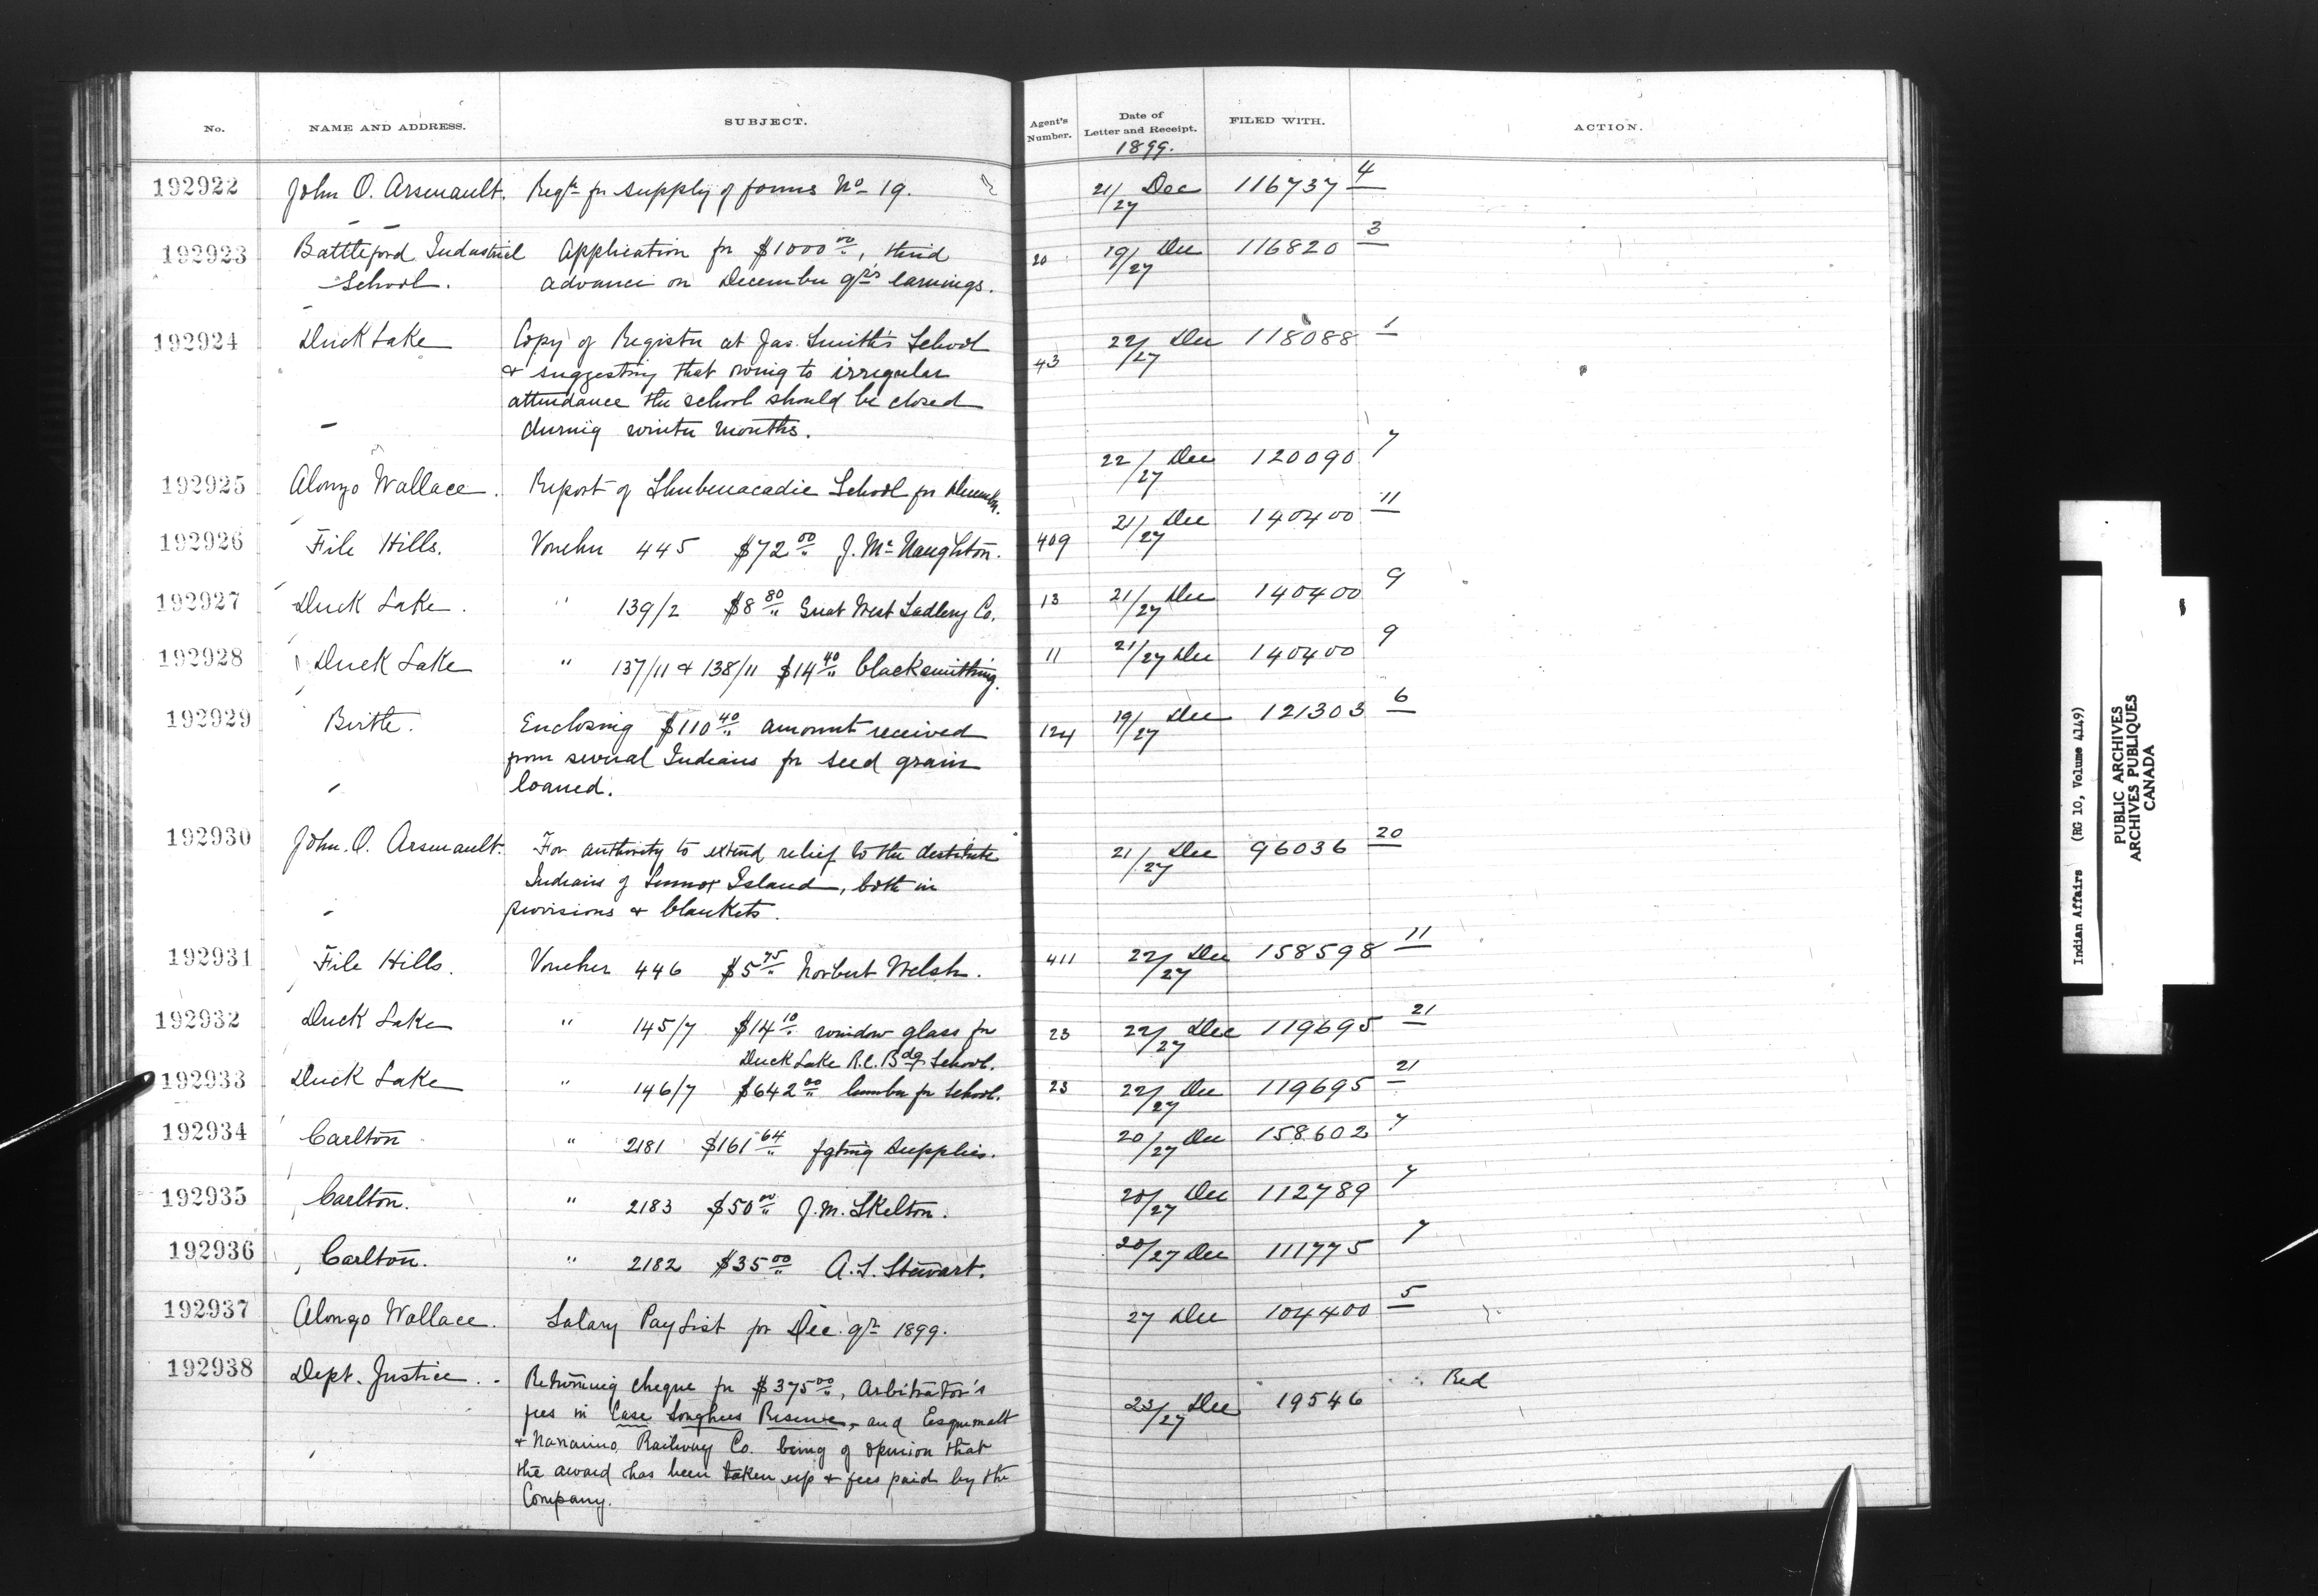 No. NAME AND ADDRESS. SUBJECT. Agent's Number. Date of Letter and Receipt. FILED WITH. ACTION.
1899.
192922 John O. Arsenault. Reqt for supply of forms No 19. 21/27 Dec 116737 4
192923 Battleford Industrial Application for $1000 00, third 20 19/27 Dec 116820 3
School. advance on December qr's earnings.
192924 Duck Lake Copy of Register at Jas. Smith's School 43 22/27 Dec 118088 1
& suggesting that owing to irregular
attendance the school should be closed
during winter months.
192925 Alonzo Wallace. Report of Shubenacadie School for December. 22/27 Dec 120090 7
192926 File Hills. Voucher 445 $72 00 J. McNaughton. 409 21/27 Dec 140400 11
192927 Duck Lake. " 139/2 $8 80 Great West Sadlery Co. 13 21/27 Dec 140400 9
192928 Duck Lake " 137/11 & 138/11 $14 40 blacksmithing. 11 21/27 Dec 140400 9
192929 Birtle. Enclosing $110 40 amount received 124 19/27 Dec 121303 6
from several Indians for seed grain
loaned.
192930 John. O. Arsenault. For authority to extend relief to the destitute 21/27 Dec 96036 20
Indians of Lennox Island, both in
provisions & blankets.
192931 File Hills. Voucher 446 $5 75 Norbert Welsh. 411 22/27 Dec 158598 11
192932 Duck Lake " 145/7 $14 10 window glass for 23 22/27 Dec 119695 21
Duck Lake R.C. Bdg School.
192933 Duck Lake " 146/7 $642 00 lumber for School. 23 22/27 Dec 119695 21
192934 Carlton " 2181 $161 64 fgting supplies. 20/27 Dec 158602 7
192935 Carlton. " 2183 $50 00 J. M. Skelton. 20/27 Dec 112789 7
192936 Carlton. " 2182 $35 00 A. L. Stewart. 20/27 Dec 111775 7
192937 Alonzo Wallace. Salary Pay List for Dec. qr 1899. 27 Dec 104400 5
192938 Dept. Justice. Returning cheque for $375 00, Arbitrator's 23/27 Dec 19546 Red
fees in Case Songhees Reserve, and Esquimalt
& Nanaimo Railway Co. being of opinion that
the award has been taken up & fees paid by the
Company.
Indian Affairs (RG 10, Volume 4149)
PUBLIC ARCHIVES
ARCHIVES PUBLIQUES
CANADA